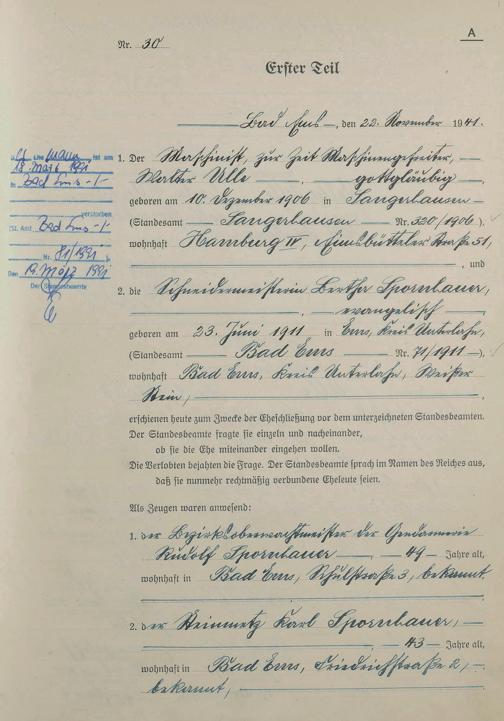 A
Nr. 30
Erster Teil
Bad Ems, den 22. November 1941.
1. Der Maschinist, zur Zeit Maschinengefreiter,
Walter Ulle, gottgläubig
geboren am 10. Dezember 1906 in Sangerhausen
(Standesamt Sangerhausen Nr. 520/1906)
wohnhaft Hamburg IV, Eimsbütteler Straße 51,
, und
2. die Schneidermeisterin Bertha Spornhauer,
evangelisch
geboren am 23. Juni 1911 in Ems, Kreis Unterlahn,
(Standesamt Bad Ems Nr. 71/1911).
wohnhaft Bad Ems, Kreis Unterlahn, Weißer
Stein,
erschienen heute zum Zwecke der Eheschließung vor dem unterzeichneten Standesbeamten.
Der Standesbeamte fragte sie einzeln und nacheinander,
ob sie die Ehe miteinander eingehen wollen.
Die Verlobten bejahten die Frage. Der Standesbeamte sprach im Namen des Reiches aus,
daß sie nunmehr rechtmäßig verbundene Eheleute seien.
Als Zeugen waren anwesend:
1. der Bezirksoberwachtmeister der Gendarmerie
Rudolf Spornhauer, 49 Jahre alt,
wohnhaft in Bad Ems, Schulstraße 3, bekannt.
2. der Steinmetz Karl Spornhauer,
43 Jahre alt,
wohnhaft in Bad Ems, Friedrichstraße 2,
bekannt,
mann ist am
18. März 1991
in Bad Ems
verstorben
St. Amt Bad Ems
Nr. 81/1991
Den 19. März 1991
Der Standesbeamte